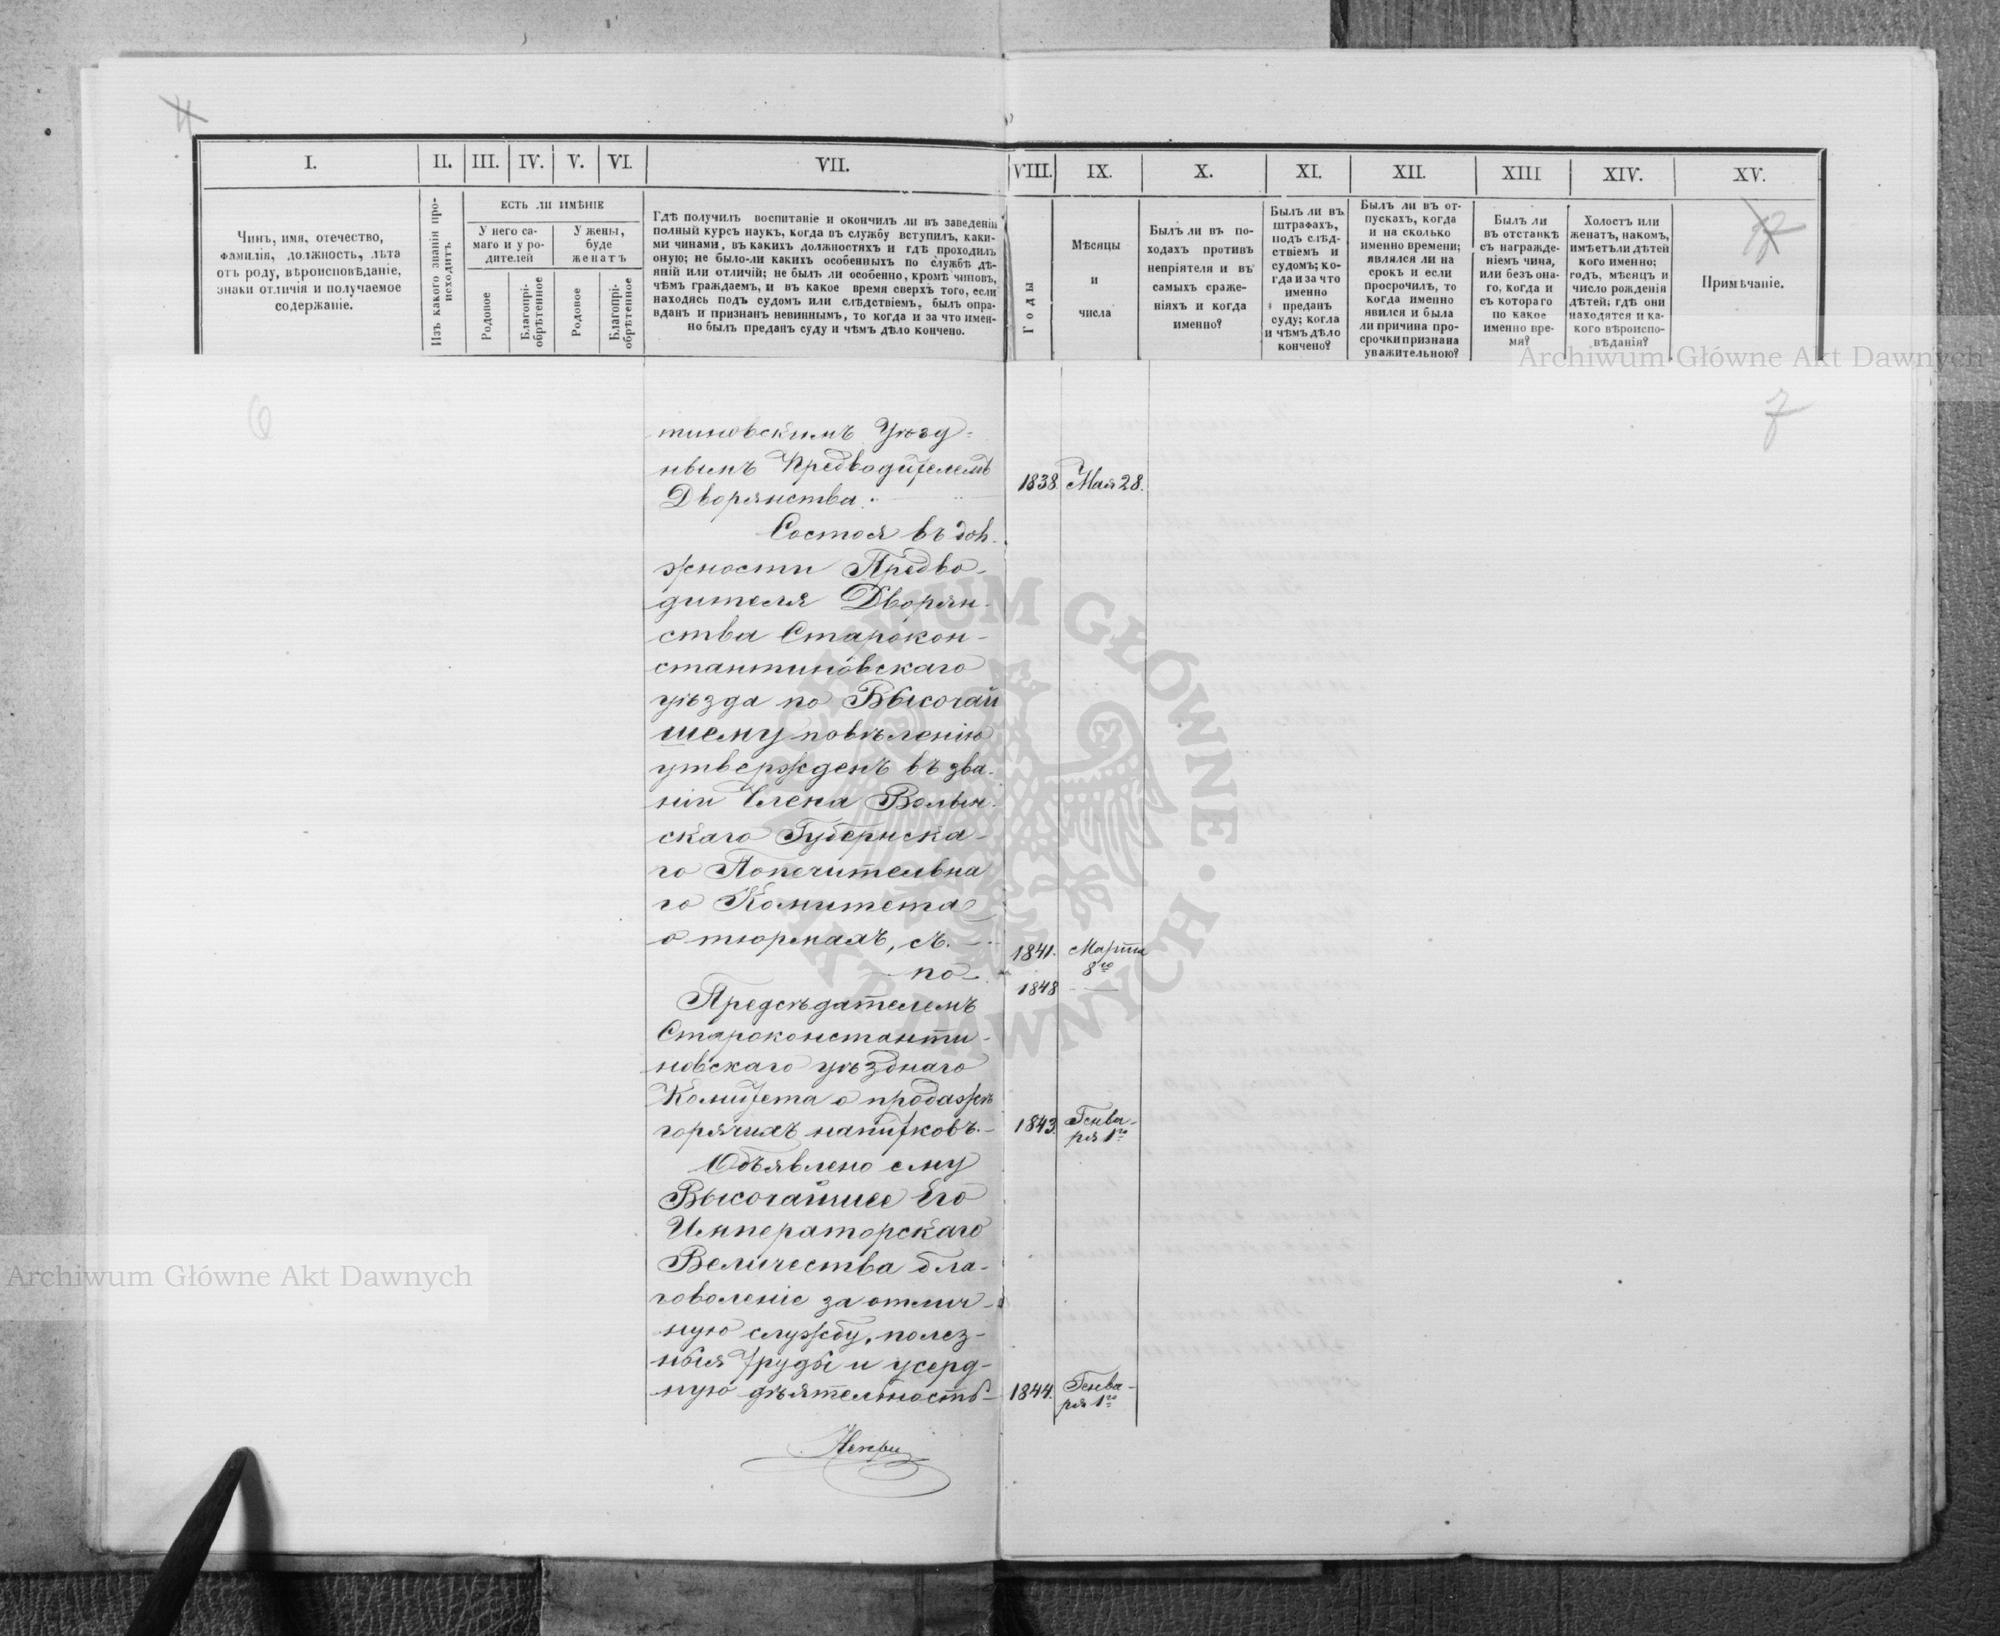 4
I.
II.
III.
IV.
V.
VI.
VII.
VIII.
IX.
X.
XI.
XII.
XIII
XIV.
XV.
Чинъ, имя, отечество,
фамилія, должность, лѣта
отъ роду, вѣроисповѣданіе,
знаки отличія и получаемое
содержаніе.
Изъ какого званія про-
исходитъ
ЕСТЬ ЛИ ИМѢНІЕ
У него са-
маго и у ро-
дителей
У жены,
буде
женатъ
Родовое
Благопрі-
обрѣтенное
Родовое
Благопрі-
обрѣтенное
Гдѣ получилъ воспитаніе и окончилъ ли въ заведеніи
полный курсъ наукъ, когда въ службу вступилъ, каки-
ми чинами, въ какихъ должностяхъ и гдѣ проходилъ
оную; не было-ли какихъ особенныхъ по службѣ дѣ-
яній или отличій; не былъ ли особенно, кромѣ чиновъ,
чѣмъ граждаемъ, и въ какое время сверхъ того, если
находясь подъ судомъ или слѣдствіемъ, былъ опра-
вданъ и признанъ невиннымъ, то когда и за что имен-
но былъ преданъ суду и чѣмъ дѣло кончено.
Годы
Мѣсяцы
и
числа
Былъ ли въ по-
ходахъ противъ
непріятеля и въ
самыхъ сраже-
ніяхъ и когда
именно?
Былъ ли въ
штрафахъ,
подъ слѣд-
ствіемъ и
судомъ; ко-
гда и за что
именно
преданъ
суду; когда
и чѣмъ дѣло
кончено?
Былъ ли въ от-
пускахъ, когда
и на сколько
именно времени;
являлся ли на
срокъ и если
просрочилъ, то
когда именно
явился и была
ли причина про-
срочки признана
уважительною?
Былъ ли
въ отставкѣ
съ награжде-
ніемъ чина,
или безъ она-
го, когда и
съ котораго
по какое
именно вре-
мя?
Холостъ или
женатъ, на комъ,
имѣетъ ли дѣтей
кого именно;
годъ, мѣсяцъ и
число рожденія
дѣтей; гдѣ они
находятся и ка-
кого вѣроиспо-
вѣданія?
Примѣчаніе.
6
7
тиновскимъ Уѣзд-
нымъ Предводителемъ
Дворянства.
1838. Мая 28.
Состоя въ дол-
жности Предво-
дителя Дворян-
ства Старокон-
стантиновскаго
уѣзда по Высочай
шему повѣленію
утвержденъ въ зва-
ніи Члена Волын-
скаго Губернска-
го Попечительна
го Комитета
о тюрмахъ, съ.
1841. Марта
8го
по
1848
Предсѣдателемъ
Староконстанти-
новскаго уѣзднаго
Комитета о продажѣ
горячихъ напитковъ.
1843. Генва-
ря 1го
Объявлено ему
Высочайшее Его
Императорскаго
Величества бла-
говоленіе за отлич-
ную службу, полез-
ныя труды и усерд-
ную дѣятельность
1844. Генва-
ря 1го
Archiwum Główne Akt Dawnych
Archiwum Główne Akt Dawnych
ARCHIWUM GŁÓWNE · AKT DAWNYCH ·